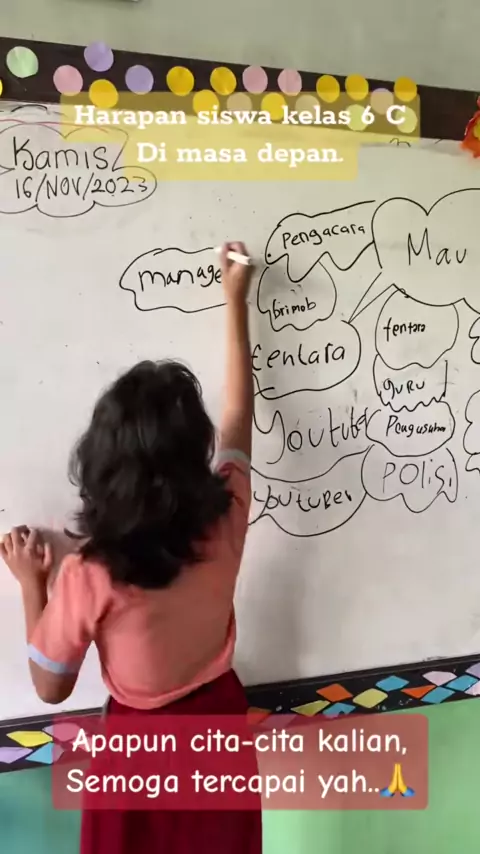 Harapan siswa kelas 6 C
Di masa depan.
Kamis
16/NOV/2023
Pengacara
Mau
manage
brimob
tentara
tentara
guru
Youtuber
Pengusaha
Polisi
youtuber
Apapun cita-cita kalian,
Semoga tercapai yah..🙏